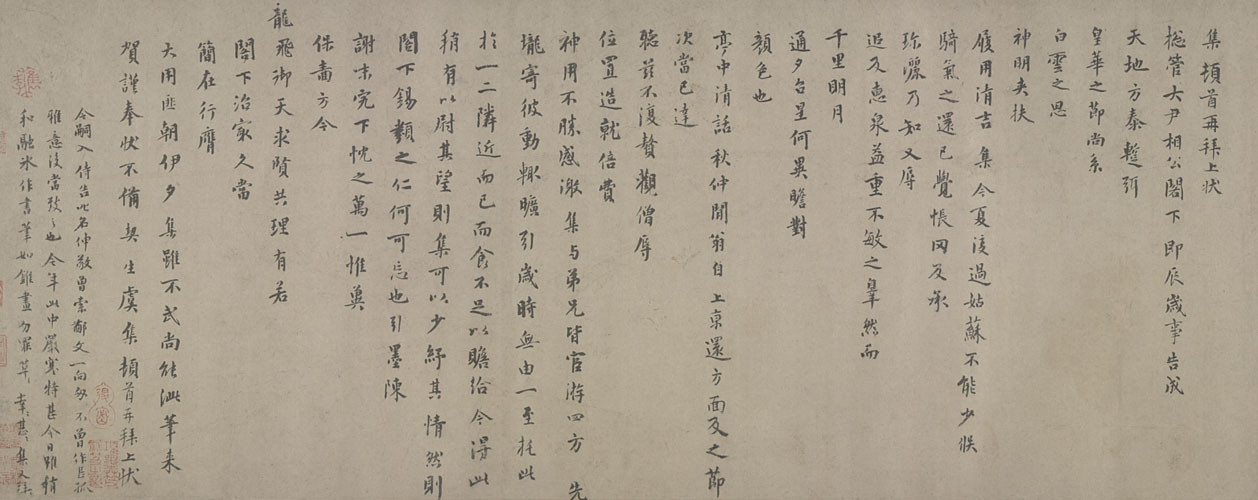 集頓首再拜上狀
揔管大尹相公閤下即辰歲事告成
天地方泰蹔弭
皇華之節尚系
白雲之思
神明夾扶
履用清吉集今夏後過姑蘇不能少俟
騎氣之還已覺悵罔及承
珎灑乃知又辱
追及惠泉益重不敏之辠然而
千里明月
通夕台星何異瞻對
顏色也
亭中清話秋仲閒翁自上京還方面及之節
次當已達
聽茲不復贅觀僧辱
位置造就倍費
神用不勝感激集与弟兄皆官游四方先
壠寄彼動輒曠引歲時無由一至托此
於一二隣近而已而食不足以贍給今得此
稍有以尉其望則集可以少紓其情然則
閤下錫類之仁何可忘也引墨陳
謝未究下忱之萬一惟冀
保嗇方今
龍飛御天求賢共理有若
閣下治家久當
簡在行膺
大用匪朝伊夕集雖不武尚能泚筆来
賀謹奉狀不備契生虞集頓首再拜上狀
令嗣入侍告此名仲敬曾索鄙文一向匆不曾作且孤
雅意後當致之也今年此中嚴寒特甚今日雖稍
和融氷作書筆如錐畫勿罪草草幸甚集又拜